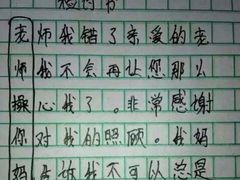 检讨书
老师我错了亲爱的老
师我不会再让您那么
操心我了。非常感谢
你对我的照顾。我妈
妈告诉我不可以总是